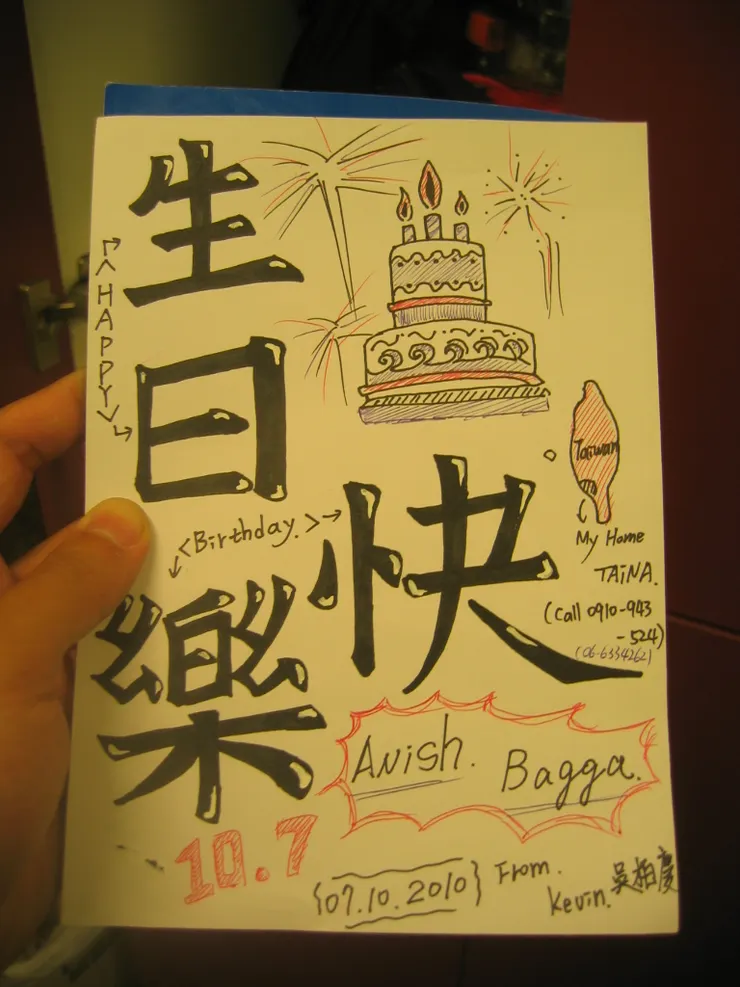 生
日
快
樂
HAPPY
<Birthday.>
Taiwan
My Home
TAiNA.
(Call 0910-943
-524)
(06-6334262)
Anish. Bagga.
10.7
{07.10.2010}
From.
Kevin. 吳柏慶